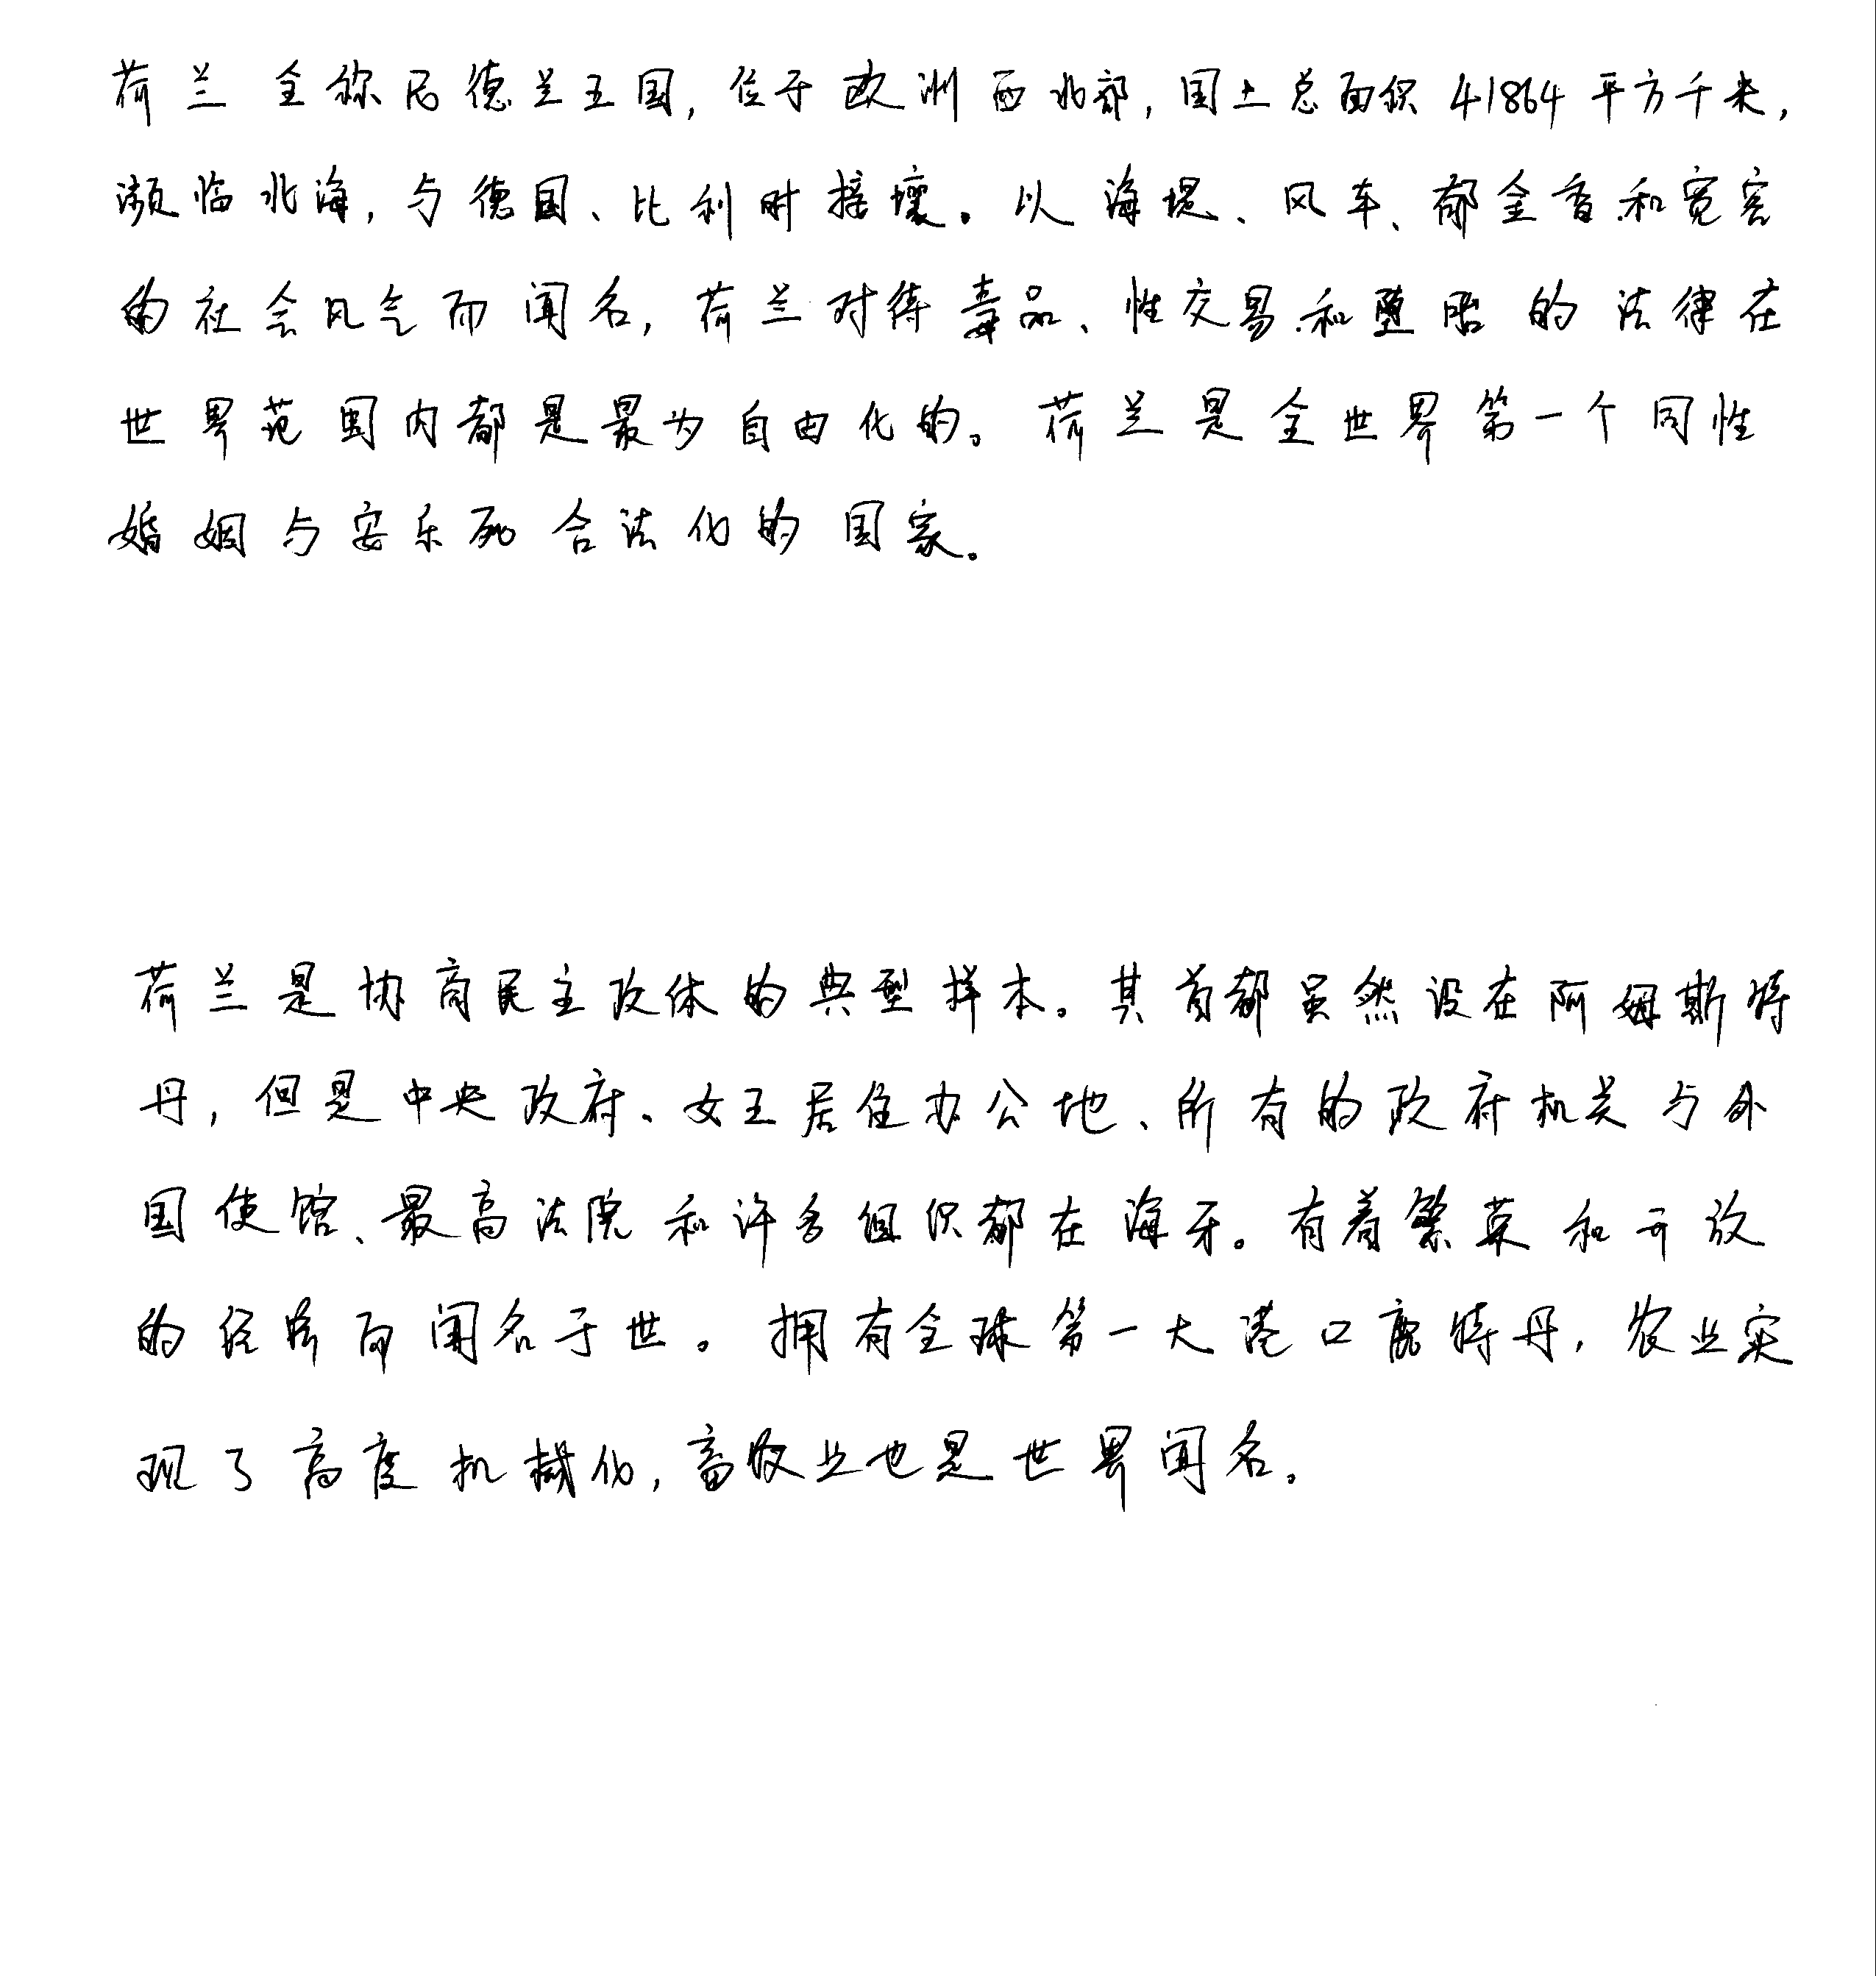 荷兰全称尼德兰王国,位于欧洲西北部,国土总面积41864平方千米,
濒临北海,与德国、比利时接壤。以海堤、风车、郁金香和宽容
的社会风气而闻名,荷兰对待毒品、性交易和堕胎的法律在
世界范围内都是最为自由化的。荷兰是全世界第一个同性
婚姻与安乐死合法化的国家。
荷兰是协商民主政体的典型样本。其首都虽然设在阿姆斯特
丹,但是中央政府、女王居住办公地、所有的政府机关与外
国使馆、最高法院和许多组织都在海牙。有着繁荣和开放
的经济而闻名于世。拥有全球第一大港口鹿特丹,农业实
现了高度机械化,畜牧业也是世界闻名。